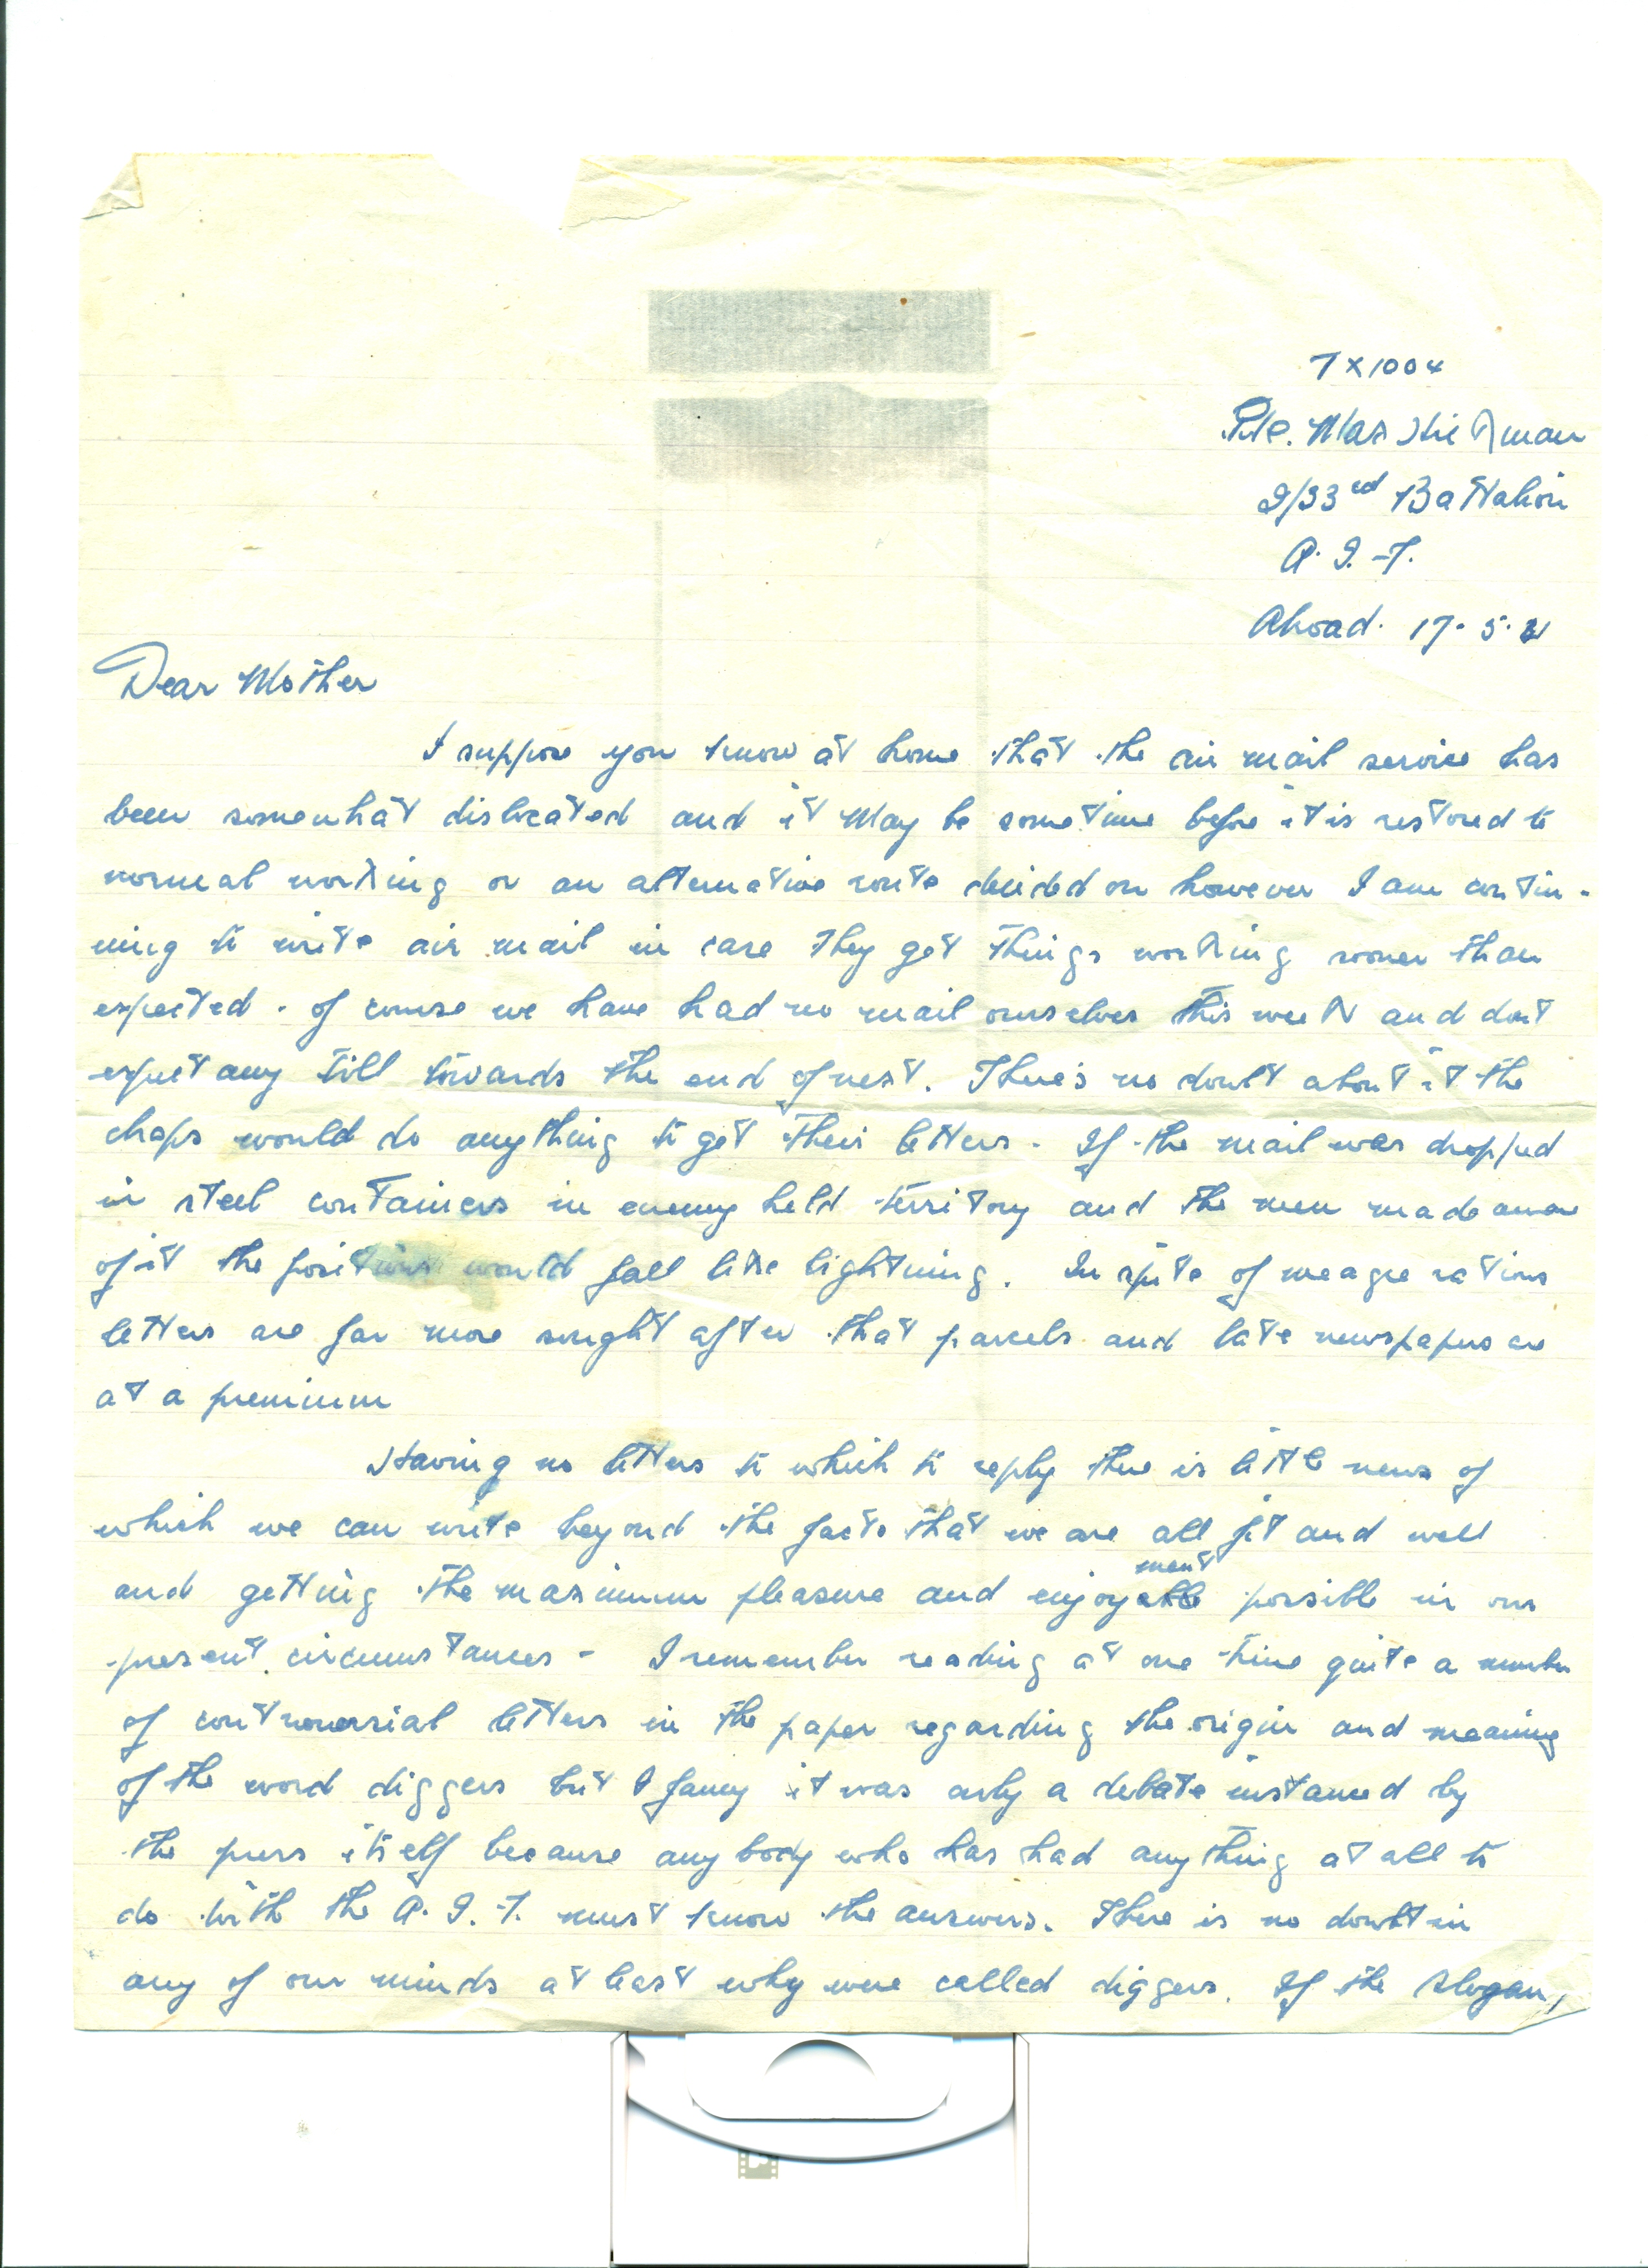 TX1004
Pte. Max Hickman
2/33rd Battalion
A. I. F.
Abroad. 17. 5. 41
Dear Mother
I suppose you know at home that the air mail service has
been somewhat dislocated and it may be sometime before it is restored to
normal working or an alternative route decided on however I am contin-
uing to write air mail in case they get things working sooner than
expected. Of course we have had no mail ourselves this week and dont
expect any till towards the end of next. There's no doubt about it the
chaps would do anything to get their letters. If the mail was dropped
in steel containers in enemy held territory and the men made aware
of it the positions would fall like lightning. In spite of meagre rations
letters are far more sought after that parcels and late newspapers are
at a premium
Having no letters to which to reply there is little news of
which we can write beyond the facts that we are all fit and well
and getting the maximum pleasure and enjoyment possible in our
present circumstances - I remember reading at one time quite a number
of controversial letters in the paper regarding the origin and meaning
of the word diggers but I fancy it was only a debate instanced by
the press itself because anybody who has had anything at all to
do with the A. I. F. must know the answers. There is no doubt in
any of our minds at least why were called diggers. If the slogan,